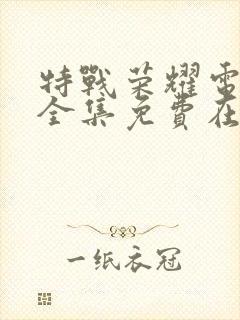 特戰荣耀電
全集免費在
一纸衣冠